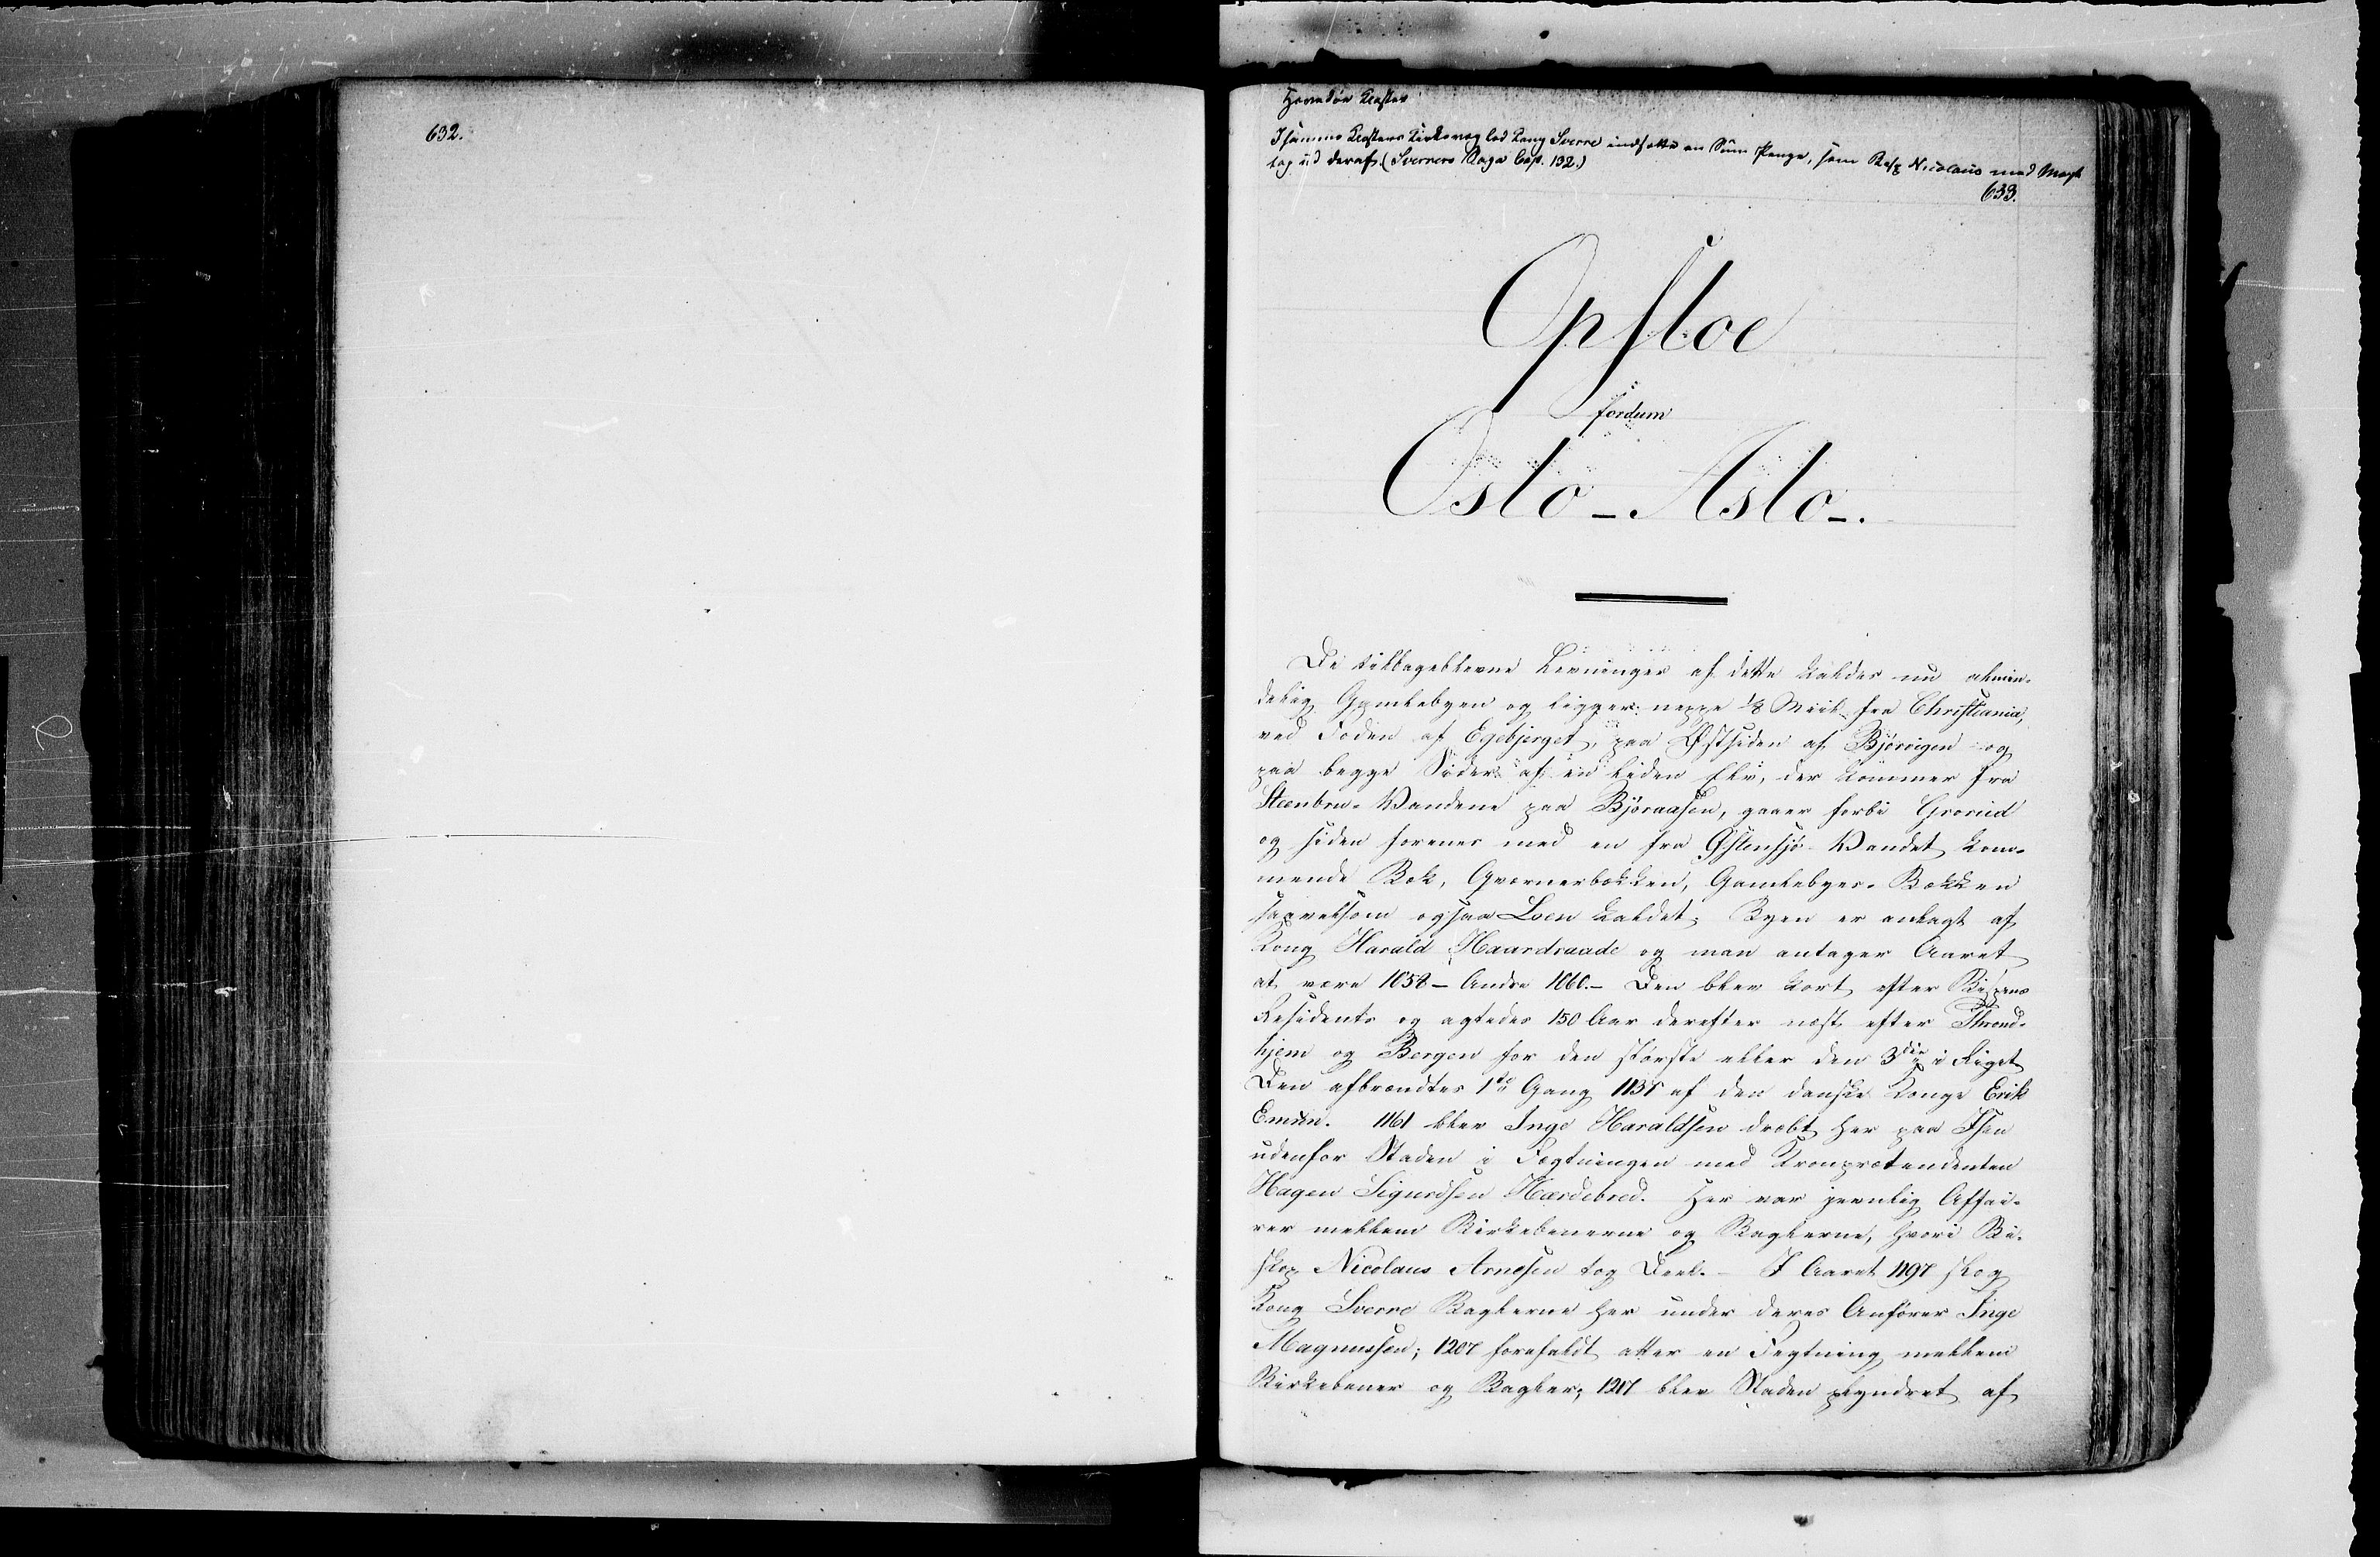 632.
Hovedøe Kloster
I samme Klosters Kirkevæg lod Kong Sverre indsætte en Sum Penge, som Bisp Nicolaus med Magt
tog ud deraf. (Sverrers Saga Cap. 132.)
633.
Opsloe
fordum
Oslo - Aslo -.
De tilbageblevne Levninger af dette kaldes nu almin-
delig Gamlebyen og ligger neppe 1/8 Miil fra Christiania,
ved Foden af Egebjerget, paa Østsiden af Bjørvigen og
paa begge Sider af en liden Elv, der kommer fra
Steenbru-Vandene paa Bjøraasen, gaaer forbi Grorud
og siden forenes med en fra Østensjø-Vandet kom-
mende Bæk, Qværnerbækken, Gamlebyes-Bækken
saavelsom ogsaa Loen kaldet. Byen er anlagt af
Kong Harald Haardraade og man antager Aaret
at være 1058 – Andre 1060. – Den blev kort efter Bispens
Residents og agtedes 150 Aar derefter næst efter Thrond-
hjem og Bergen for den største eller den 3die i Riget
Den afbrændtes 1ste Gang 1137 af den danske Konge Erik
Emun. 1161 blev Inge Haraldsen dræbt her paa Isen
udenfor Staden i Fægtningen med Kronprætendenten
Hagen Sigurdsen Hærdebred. Her var jevnlig Affai-
rer mellem Birkebenerne og Baglerne, hvori Bi-
skop Nicolaus Arnesen tog Deel. – I Aaret 1197 slog
Kong Sverre Baglerne her under deres Anfører Inge
Magnussen; 1207 forefaldt atter en Fegtning mellem
Birkebener og Bagler; 1217 blev Staden plyndret af